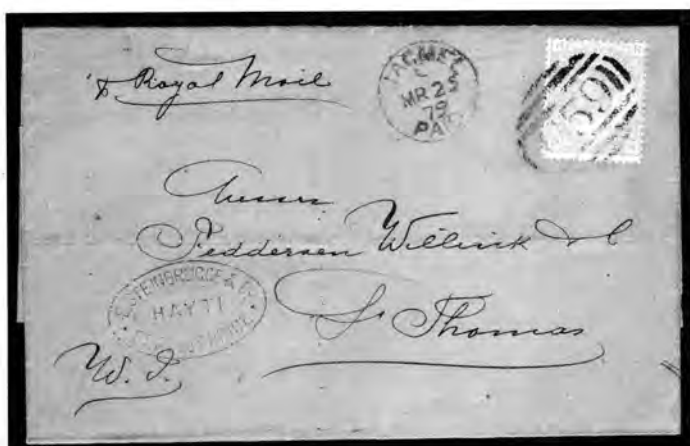 Royal Mail
JACMEL
MR 2
79
PAID
C59
Feddersen Willink & C
St Thomas
STEINBRÜGGE & Co
HAYTI
W. I.